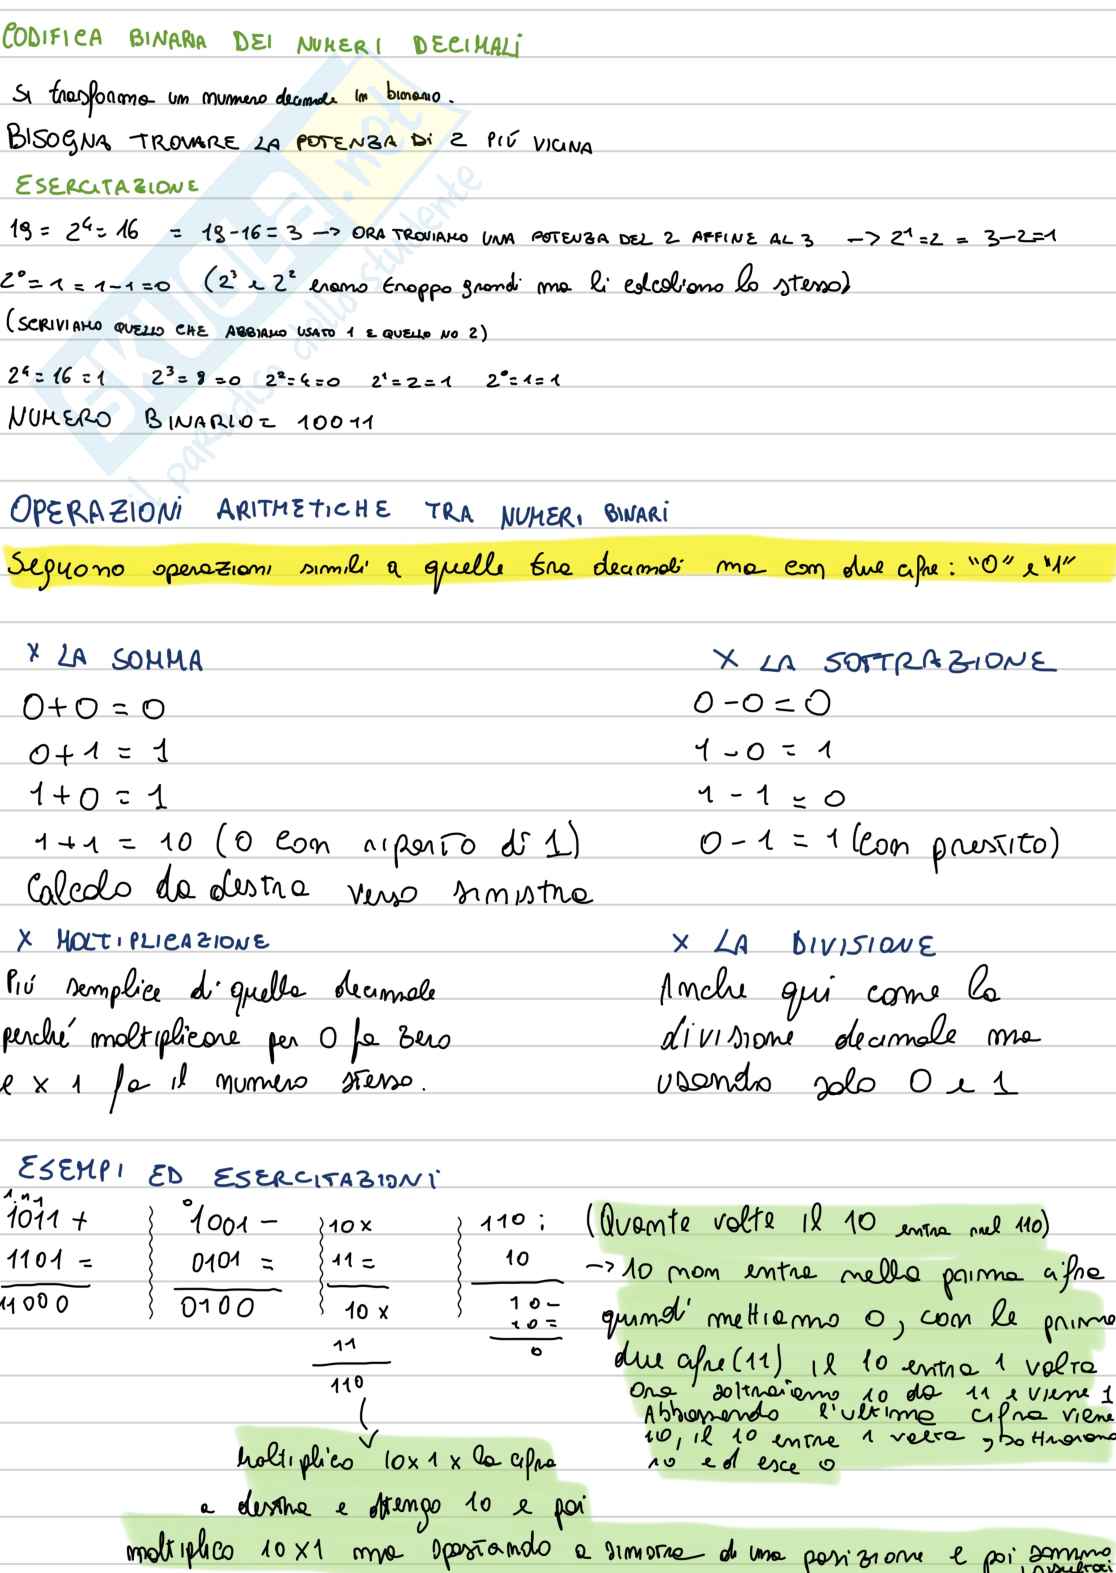 CODIFICA BINARIA DEI NUMERI DECIMALI
Si trasforma un numero decimale in binario.
BISOGNA TROVARE LA POTENZA DI 2 PIÚ VICINA
ESERCITAZIONE
19 = 2⁴ = 16 = 19-16 = 3 -> ORA TROVIAMO UNA POTENZA DEL 2 AFFINE AL 3 -> 2¹ = 2 = 3-2=1
2⁰ = 1 = 1-1=0 (2³ e 2² erano troppo grandi ma li calcoliamo lo stesso)
(SCRIVIAMO QUELLO CHE ABBIAMO USATO 1 E QUELLO NO 2)
2⁴ = 16 = 1 2³ = 8 = 0 2² = 4 = 0 2¹ = 2 = 1 2⁰ = 1 = 1
NUMERO BINARIO = 10011
SKUOLA.net
il paradiso dello studente
OPERAZIONI ARITMETICHE TRA NUMERI BINARI
Seguono operazioni simili a quelle tra decimali ma con due cifre: "0" e "1"
X LA SOMMA
0+0 = 0
0+1 = 1
1+0 = 1
1+1 = 10 (0 con riporto di 1)
Calcolo da destra verso sinistra
X LA SOTTRAZIONE
0-0 = 0
1-0 = 1
1-1 = 0
0-1 = 1 (con prestito)
X MOLTIPLICAZIONE
Piú semplice di quella decimale
perché moltiplicare per 0 fa zero
e x 1 fa il numero stesso.
X LA DIVISIONE
Anche qui come la
divisione decimale ma
usando solo 0 e 1
ESEMPI ED ESERCITAZIONI
1 1 1
1011 +
1101 =
11000
0
1001 -
0101 =
0100
10 x
11 =
10 x
11
110
110 :
10
10 -
10 =
0
(Quante volte il 10 entra nel 110)
-> 10 non entra nella prima cifra
quindi mettiamo 0, con le prime
due cifre (11) il 10 entra 1 volta
Ora sottraiamo 10 da 11 e viene 1
Abbassando l'ultima cifra viene
10, il 10 entra 1 volta, sottraiamo
10 ed esce 0
Moltiplico 10 x 1 x la cifra
a destra e ottengo 10 e poi
moltiplico 10 x 1 ma spostando a sinistra di una posizione e poi sommo
i risultati